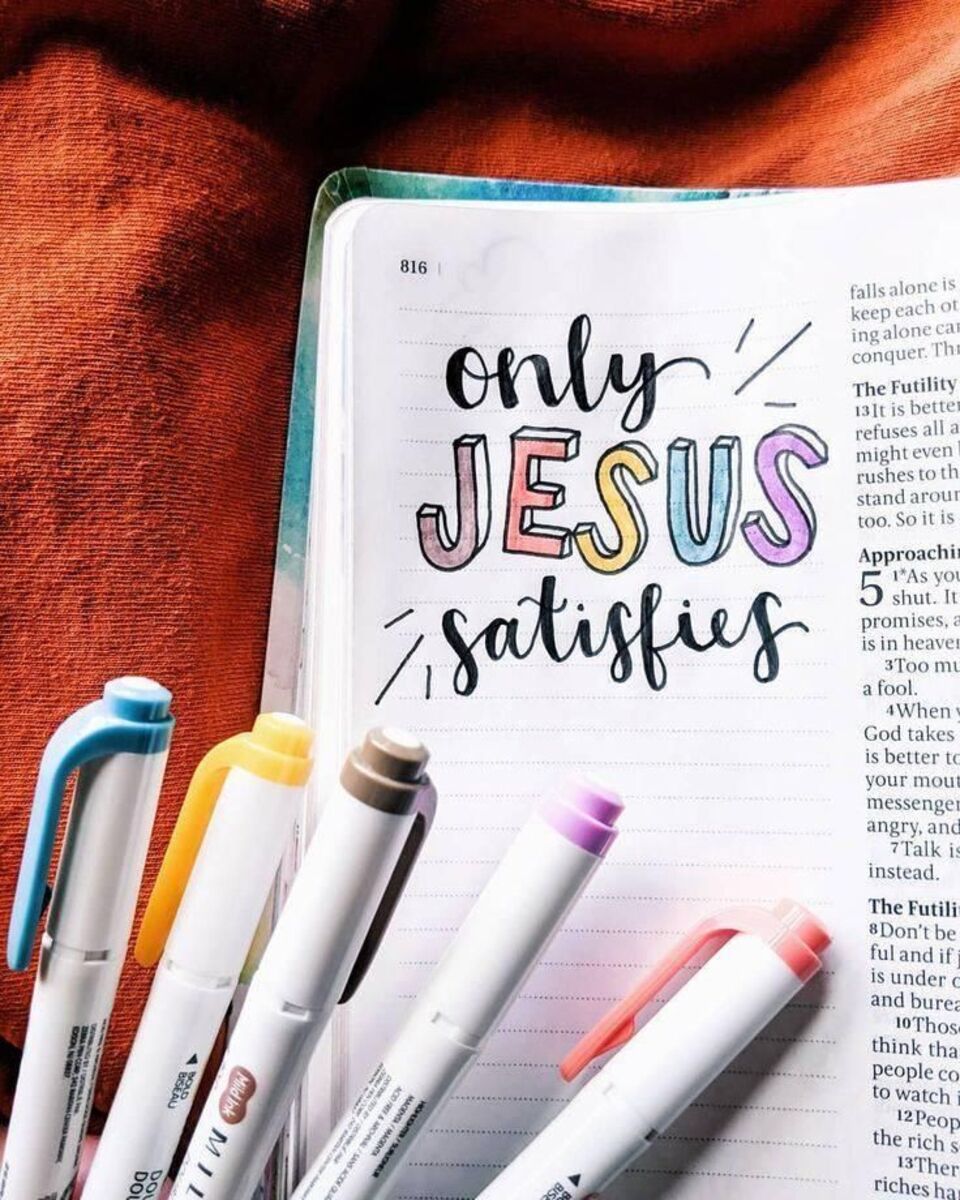 816
only
JESUS
satisfies
falls alone is
keep each ot
ing alone can
conquer. Thr
The Futility
13It is better
refuses all a
might even
rushes to th
stand aroun
too. So it is
Approachin
5 1*As you
shut. It
promises, a
is in heaven
3Too mu
a fool.
4When y
God takes
is better to
your mout
messenger
angry, and
7Talk is
instead.
The Futili
8Don't be
ful and if j
is under o
and burea
10Those
think tha
people co
to watch i
12Peop
the rich s
13Ther
riches ha
BOLD
BISEAU
Mild ink
MIL
BOLD
BISEAU